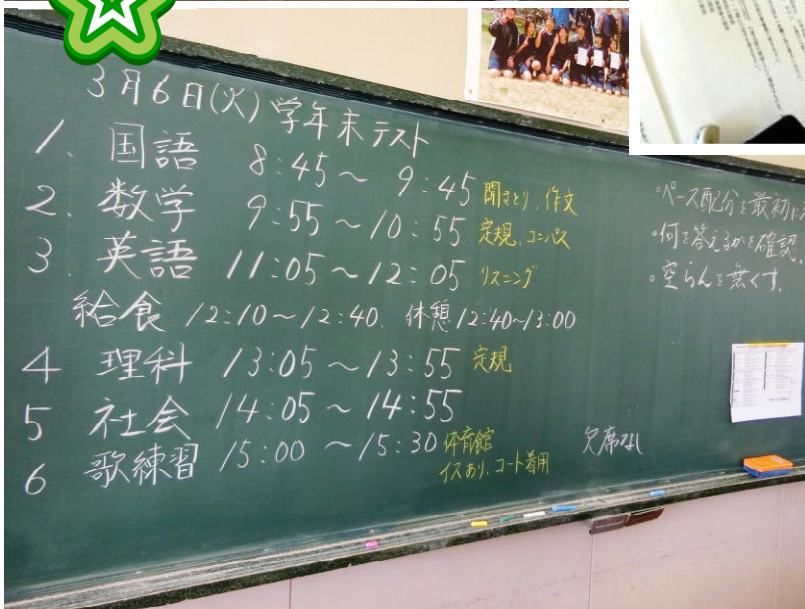 3月6日(火)学年末テスト
1. 国語 8:45～9:45 聞きとり、作文
2. 数学 9:55～10:55 定規、コンパス
3. 英語 11:05～12:05 リスニング
給食 12:10～12:40. 休憩12:40～13:00
4 理科 13:05～13:55 定規
5 社会 14:05～14:55
6 歌練習 15:00～15:30 体育館
イスあり、コート着用
欠席なし
・ペース配分を最初に
・何を答えるかを確認。
・空らんを無くす。